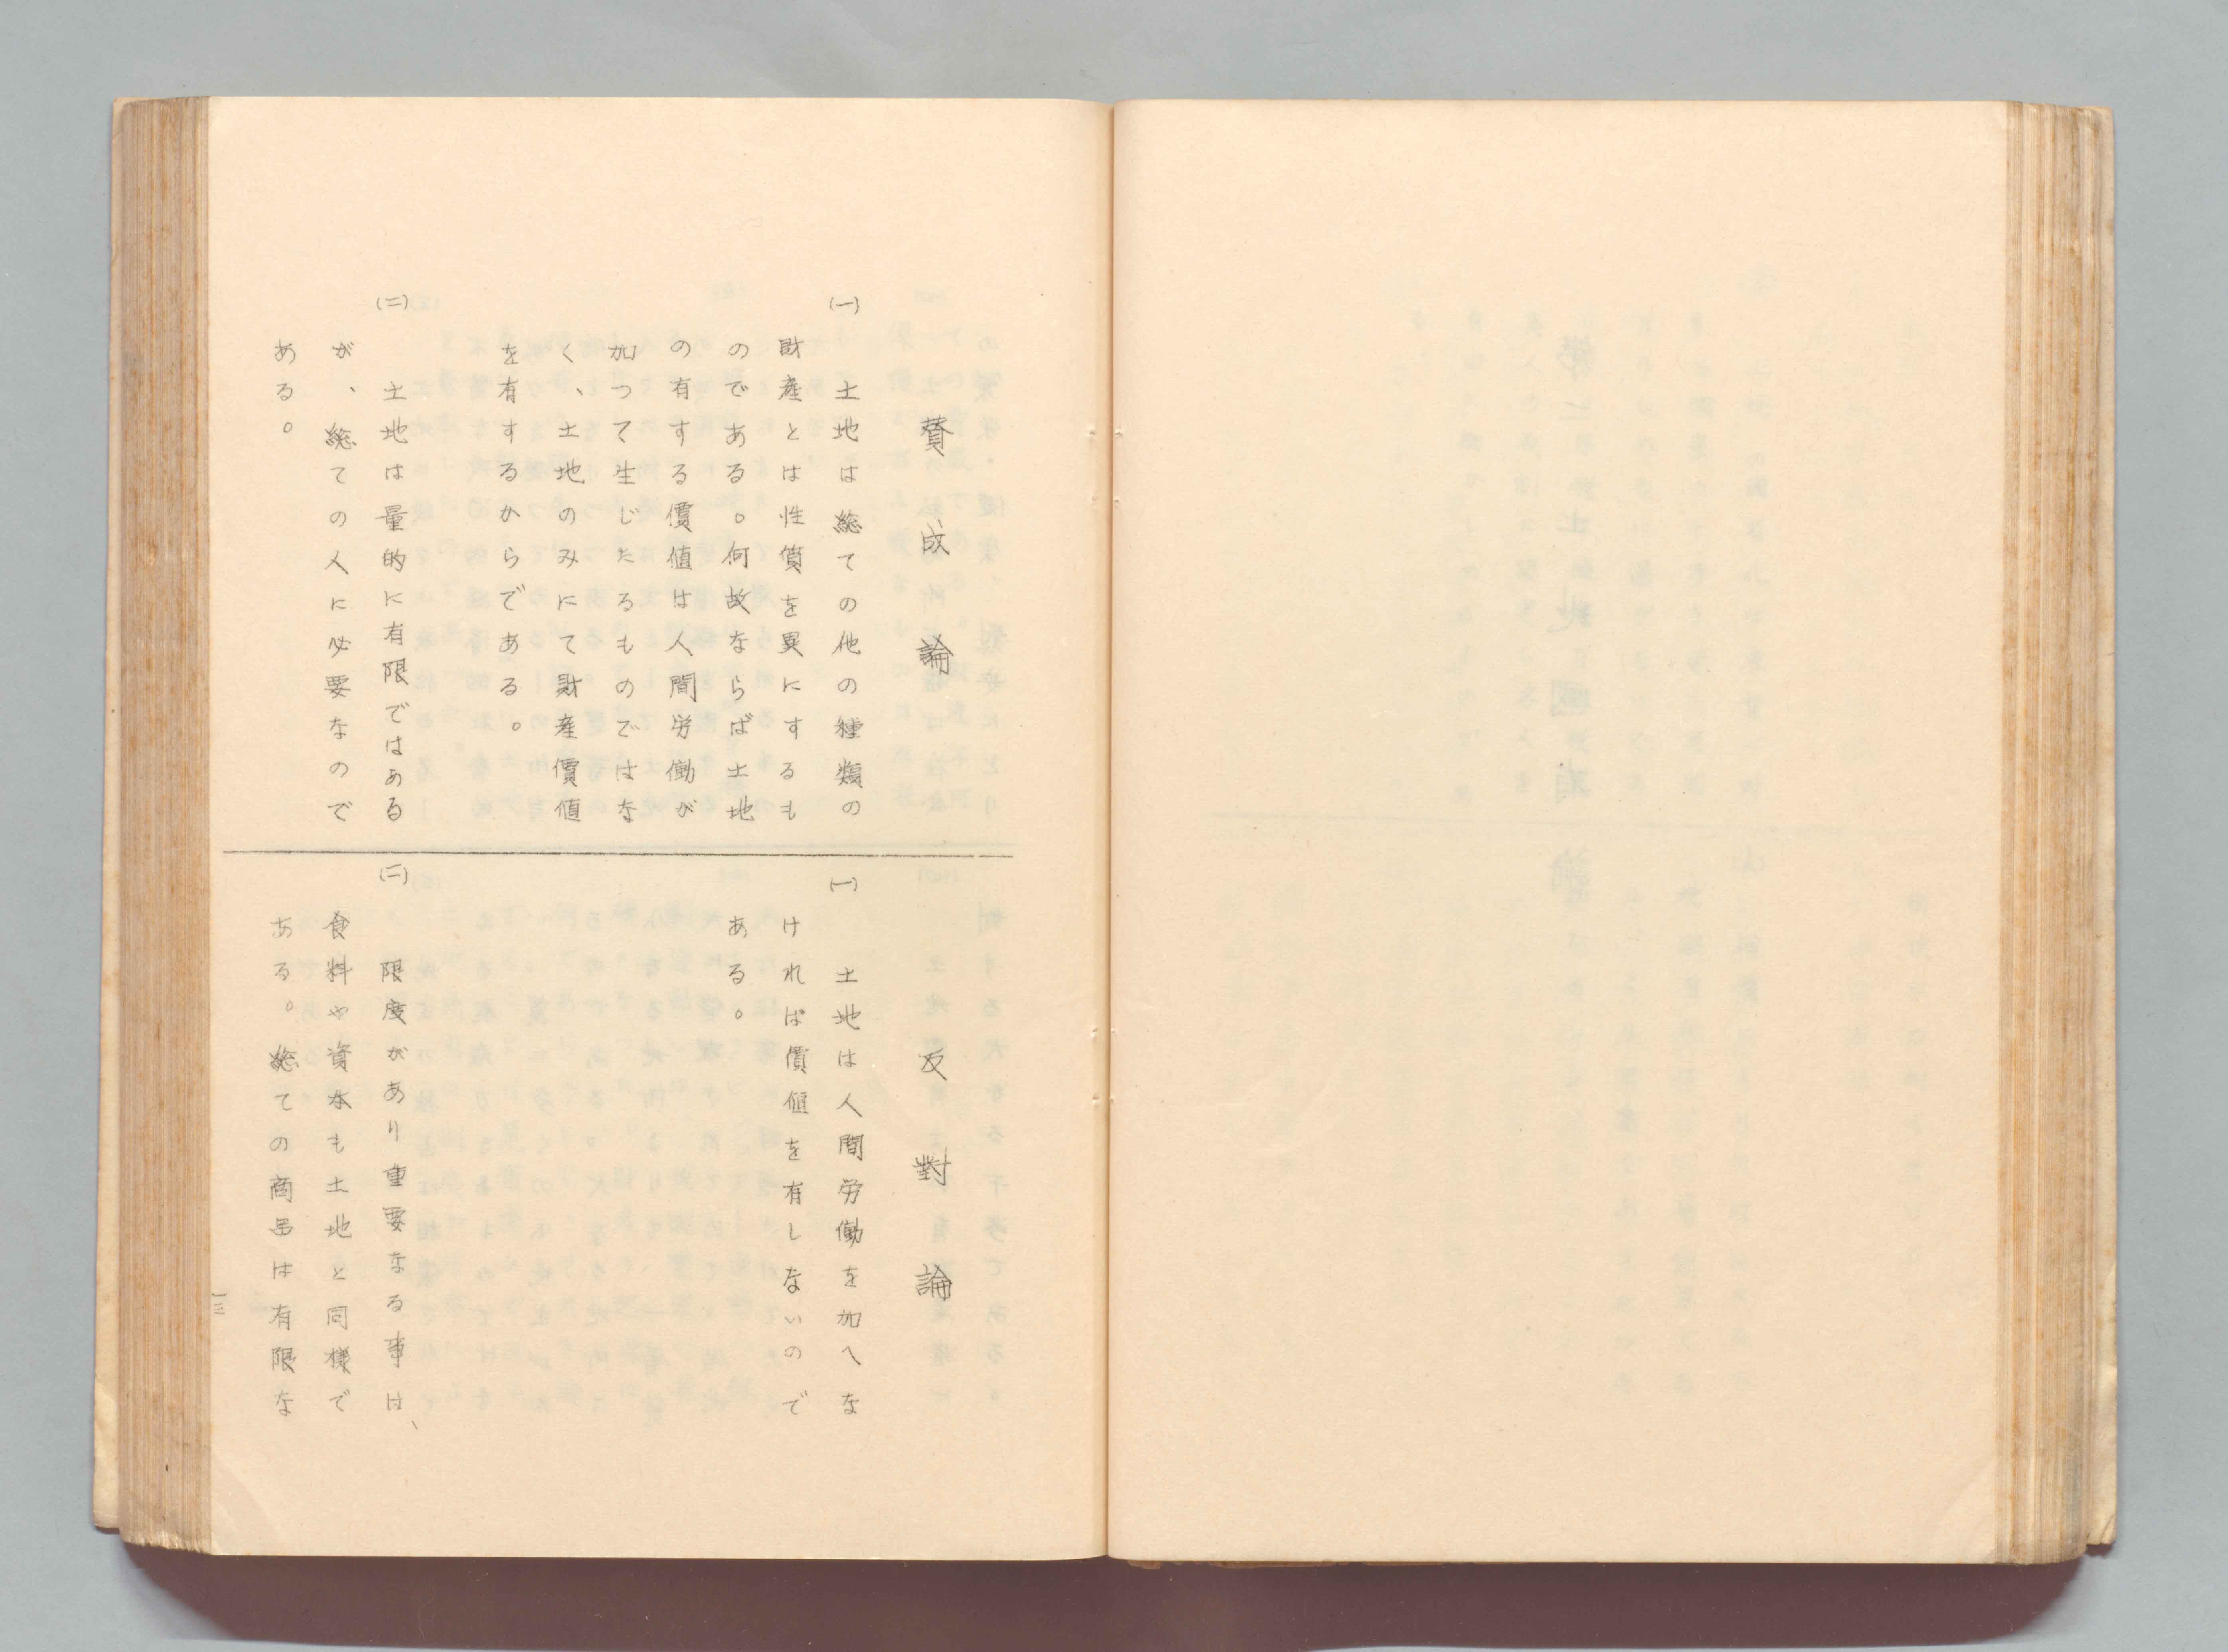 賛成論
(一) 土地は総ての他の種類の
財産とは性質を異にするも
のである。何故ならば土地
の有する價値は人間労働が
加つて生じたるものではな
く、土地のみにて財産價値
を有するからである。
(二) 土地は量的に有限ではある
が、総ての人に必要なので
ある。
反對論
(一) 土地は人間労働を加へな
ければ價値を有しないので
ある。
(二) 限度があり重要なる事は、
食料や資本も土地と同様で
ある。総ての商品は有限な
一三